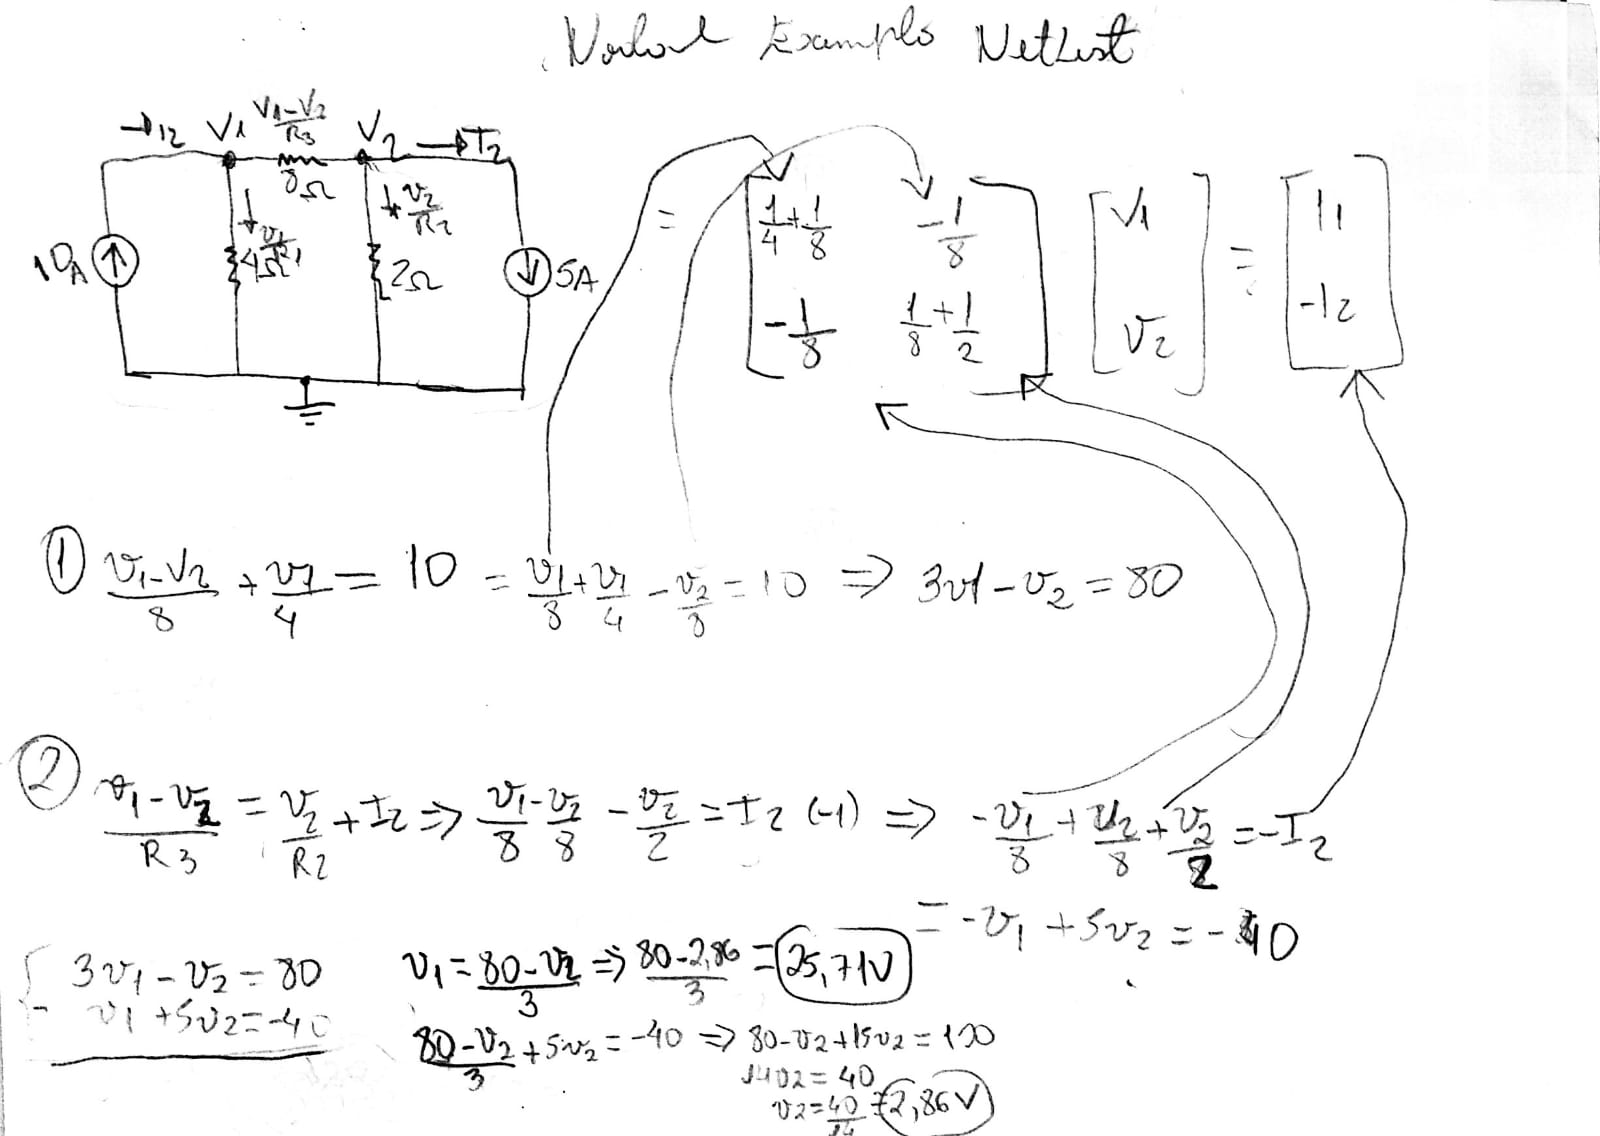 Nodal Example NetList
→ I2 V1 (V1-V2)/R3 V2 → I2
8Ω
↓ V1/R1 ↓ V2/R2
10A 4Ω 2Ω 5A
= [1/4+1/8 -1/8] [V1] = [I1]
[-1/8 1/8+1/2] [V2] [-I2]
① (V1-V2)/8 + V1/4 = 10 = V1/8 + V1/4 - V2/8 = 10 ⇒ 3V1 - V2 = 80
② (V1-V2)/R3 = V2/R2 + I2 ⇒ V1/8 - V2/8 - V2/2 = I2 (-1) ⇒ -V1/8 + V2/8 + V2/2 = -I2
= -V1 + 5V2 = -40
{ 3V1 - V2 = 80
-V1 + 5V2 = -40
V1 = (80-V2)/3 ⇒ (80-2,86)/3 = 25,71V
(80-V2)/3 + 5V2 = -40 ⇒ 80-V2+15V2 = 120
14V2 = 40
V2 = 40/14 = 2,86V